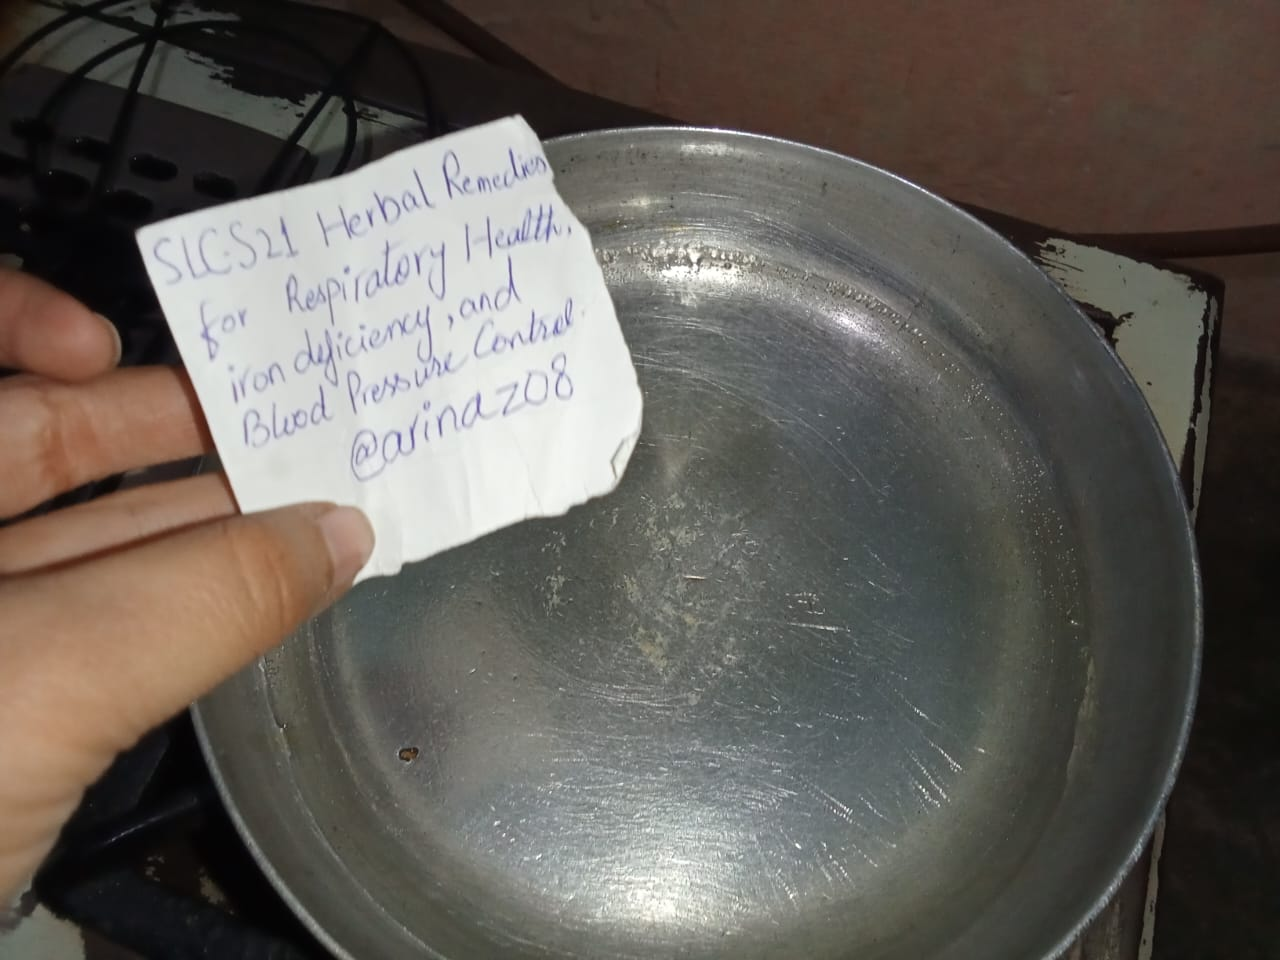 SLC-S21 Herbal Remedies
for Respiratory Health,
iron deficiency, and
Blood Pressure Control.
@arinaz08